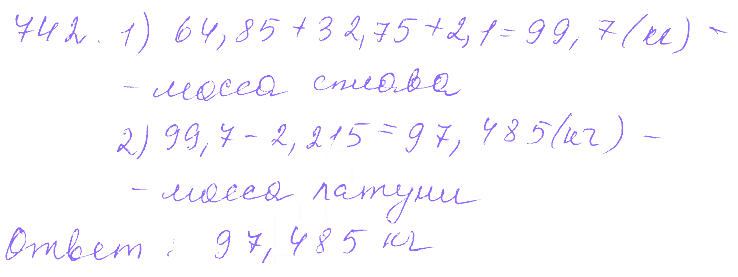 742. 1) 64,85+32,75+2,1=99,7(кг) -
- масса сплава
2) 99,7-2,215=97,485(кг) -
- масса латуни
Ответ: 97,485 кг